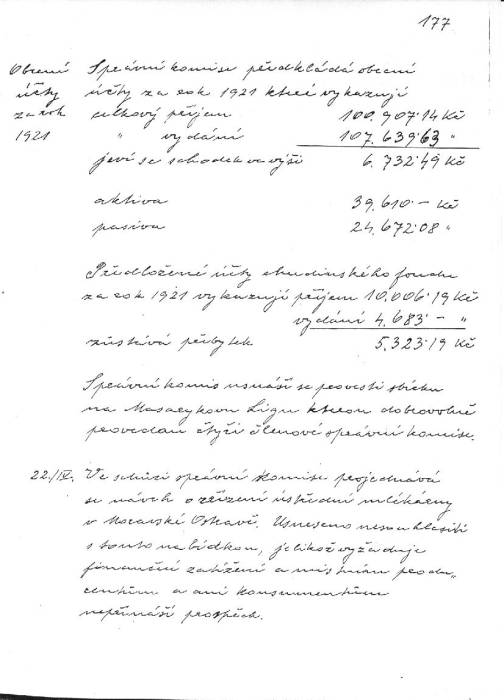 177
Obecní
účty
za rok
1921
Správní komise předkládá obecní
účty za rok 1921 které vykazují
celkový příjem 100.907·14 Kč
" vydání 107.639·63 "
jeví se schodek ve výši 6.732·49 Kč
aktiva 39.610·– Kč
pasiva 24.672·08 "
Předložené účty chudinského fondu
za rok 1921 vykazují příjem 10.006·19 Kč
vydání 4.683·– "
zůstává přebytek 5.323·19 Kč
Správní komis usnáší se provesti sbírku
na Masarykovu Ligu kterou dobrovolně
provedou čtyři členové správní komise.
22./IV. Ve schůzi správní komise projednává
se návrh o zřízení ústřední mlékárny
v Moravské Ostravě. Usneseno nesouhlasiti
s touto nabídkou, jelikož vyžaduje
finanční zatížení a místním produ„
centům a ani konsumentům
nepřináší prospěch.